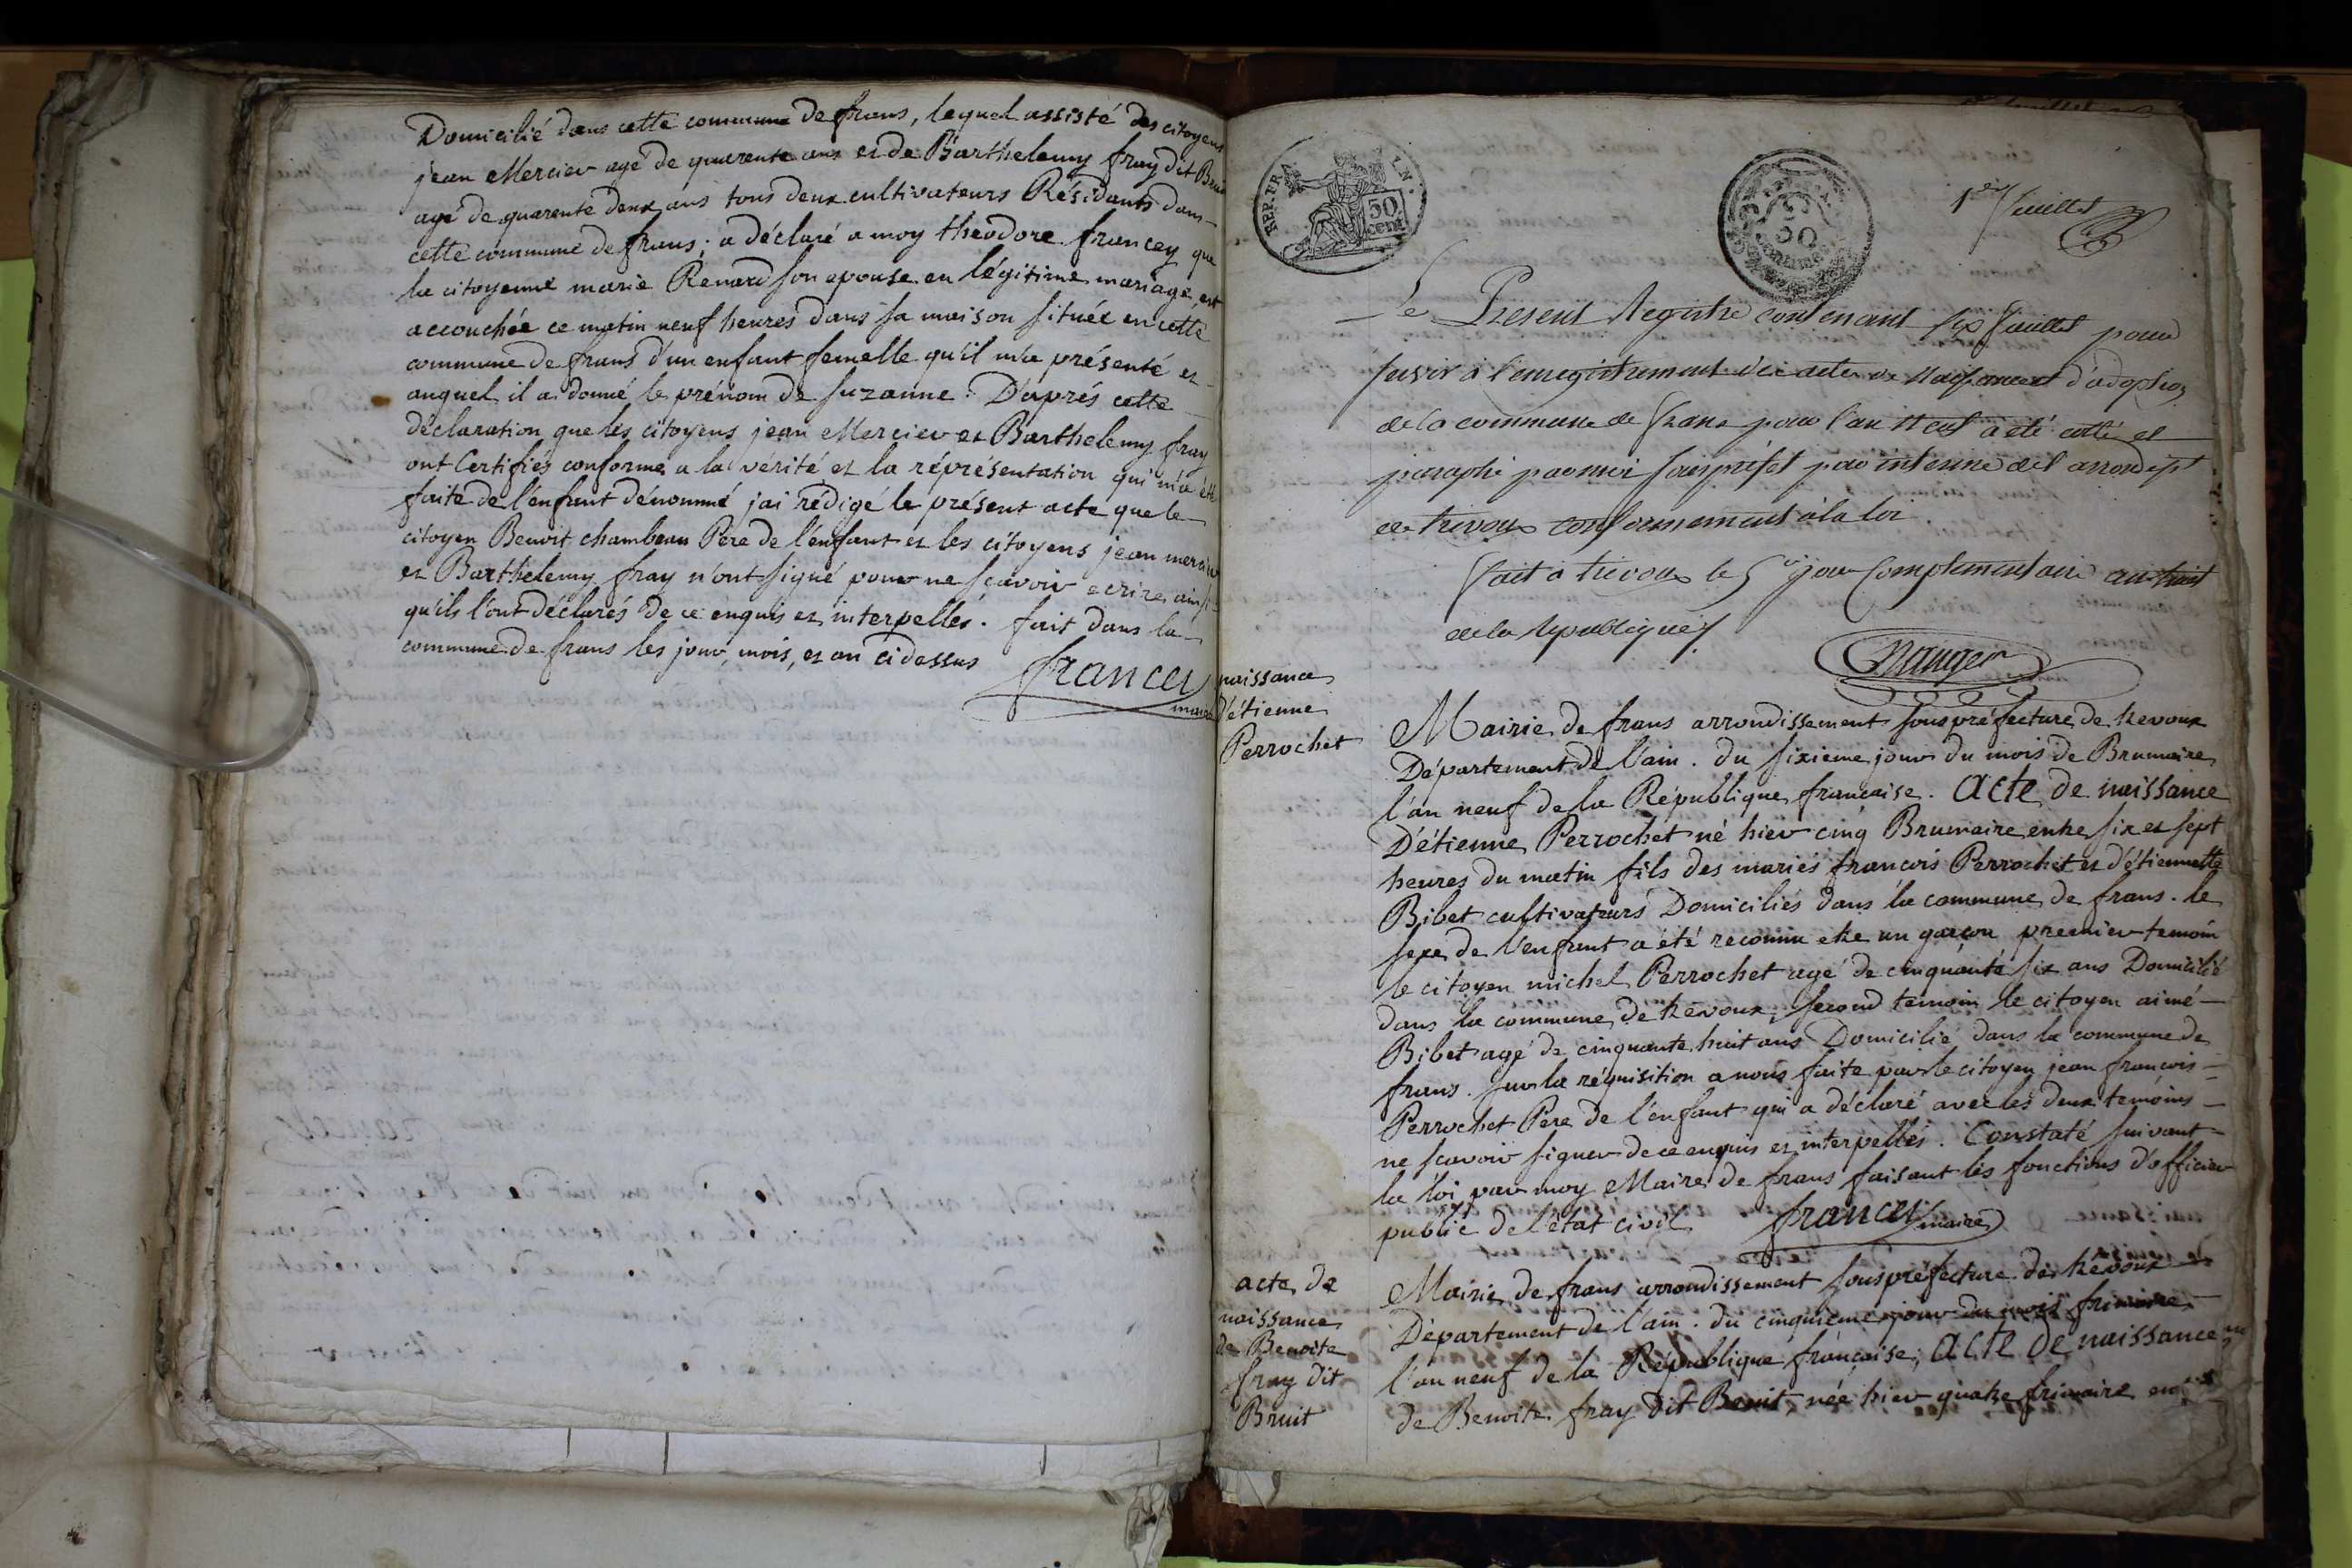 Domicilié dans cette commune de frans, lequel assisté des citoyens
jean Mercier agé de quarente ans et de Barthelemy fray dit Bruit
agé de quarente deux ans tous deux cultivateurs Résidants dans
cette commune de frans; a déclaré a moy theodore francey que
la citoyenne marie Renard son epouse en légitime mariage, est
accouchée ce matin neuf heures dans sa maison située en cette
commune de frans d'un enfant femelle qu'il m'a présenté et
auquel il a donné le prénom de suzanne. D'après cette
déclaration que les citoyens jean Mercier et Barthelemy fray
ont Certifiés conforme a la vérité et la réprésentation qui m'a été
faite de l'enfant dénommé j'ai rédigé le présent acte que le
citoyen Benoit chambeau Pere de l'enfant et les citoyens jean mercier
et Barthelemy fray n'ont signé pour ne scavoir ecrire ainsi
qu'ils l'ont déclarés de ce enquis et interpellés. fait dans la
commune de frans les jour, mois, et an ci dessus
francey
maire
REP. FRA
50
cent
50
1er feuillet
Le Present Registre contenant six feuillets pour
servir à l'enregistrement des actes de Naissances d'adoption
de la commune de frans pour l'an Neuf a été cotté et
paraphé par moi souspréfet par interime de l'arrondist
de trevoux conformement à la loi
fait à trevoux le 5e jour Complementaire an huit
de la republique
naissance
d'étienne
Perrochet
Mairie de frans arrondissement souspréfecture de trevoux
Département de l'ain. du sixieme jour du mois de Brumaire
l'an neuf de la République francaise. acte de naissance
D'étienne Perrochet né hier cinq Brumaire entre six et sept
heures du matin fils des mariés francois Perrochet et d'étiennette
Bibet cultivateurs Domiciliés dans la commune de frans. le
sexe de l'enfant a été reconnu etre un garcon premier temoin
le citoyen michel Perrochet agé de cinquante six ans Domicilié
dans la commune de trevoux, second temoin le citoyen aimé
Bibet agé de cinquante huit ans Domicilié dans la commune de
frans. sur la réquisition a nous faite par le citoyen jean francois
Perrochet Pere de l'enfant qui a déclaré avec les deux temoins
ne scavoir signer de ce enquis et interpellés. Constaté suivant
la loi par moy Maire de frans faisant les fonctions d'officier
public de l'état civil francey maire
acte de
naissance
de Benoite
fray dit
Bruit
Mairie de frans arrondissement souspréfecture de trevoux
Département de l'ain. du cinquieme jour du mois frimaire
l'an neuf de la République francaise; acte de naissance
de Benoite fray dit Bruit, née hier quatre frimaire